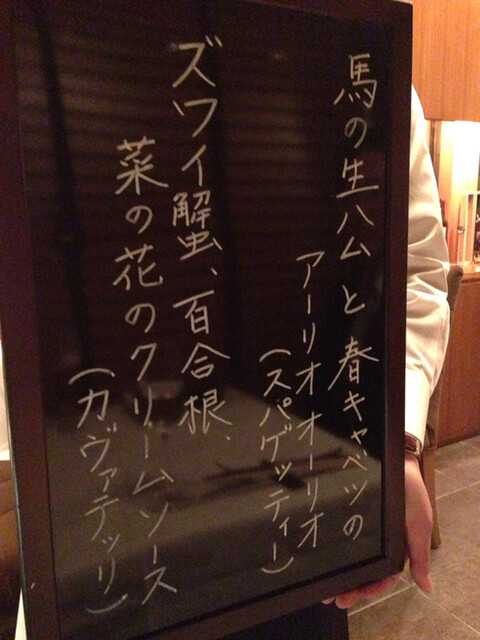 馬の生ハムと春キャベツの
アーリオオーリオ
(スパゲッティー)
ズワイ蟹、百合根、
菜の花のクリームソース
(カヴァテッリ)